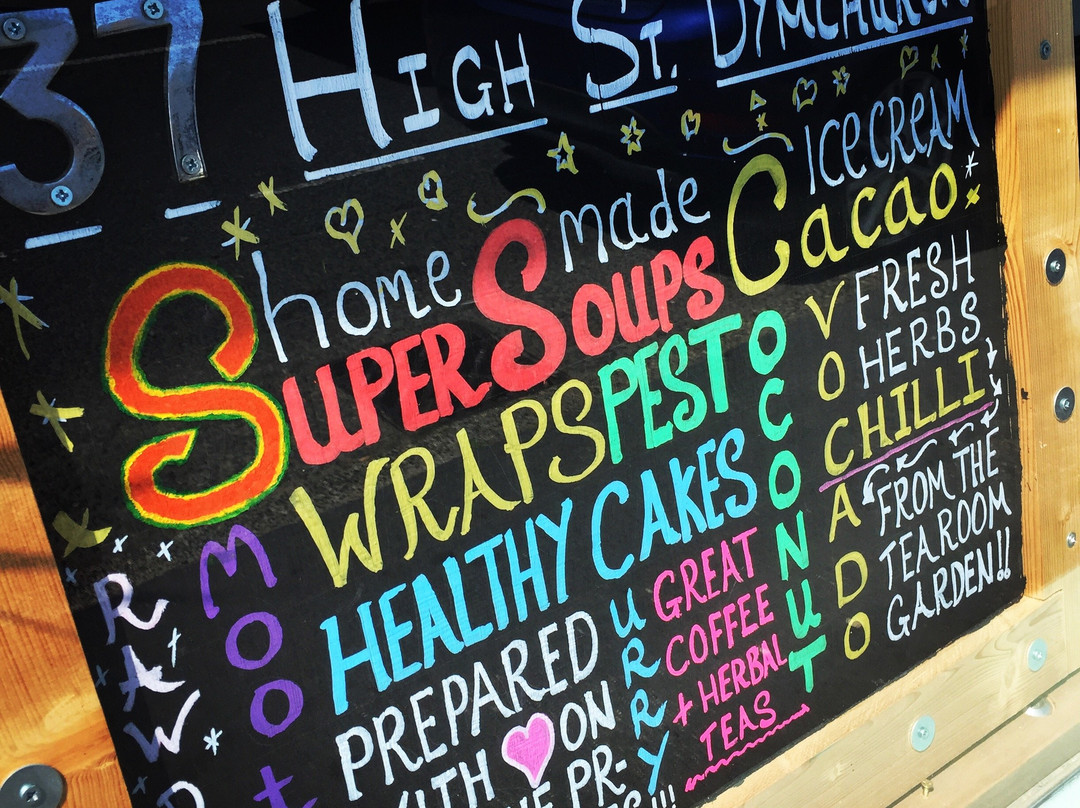 37 HIGH ST. DYMCHURCH
home made ICECREAM
SUPER SOUPS Cacao
WRAPS PESTO
HEALTHY CAKES
PREPARED
WITH ON
THE PR-
!!!
SMOOt
RAW
CURRY
GREAT
COFFEE
+ HERBAL
TEAS
COCONUT
aVOCADO
FRESH
HERBS
CHILLI
FROM THE
TEAROOM
GARDEN!!